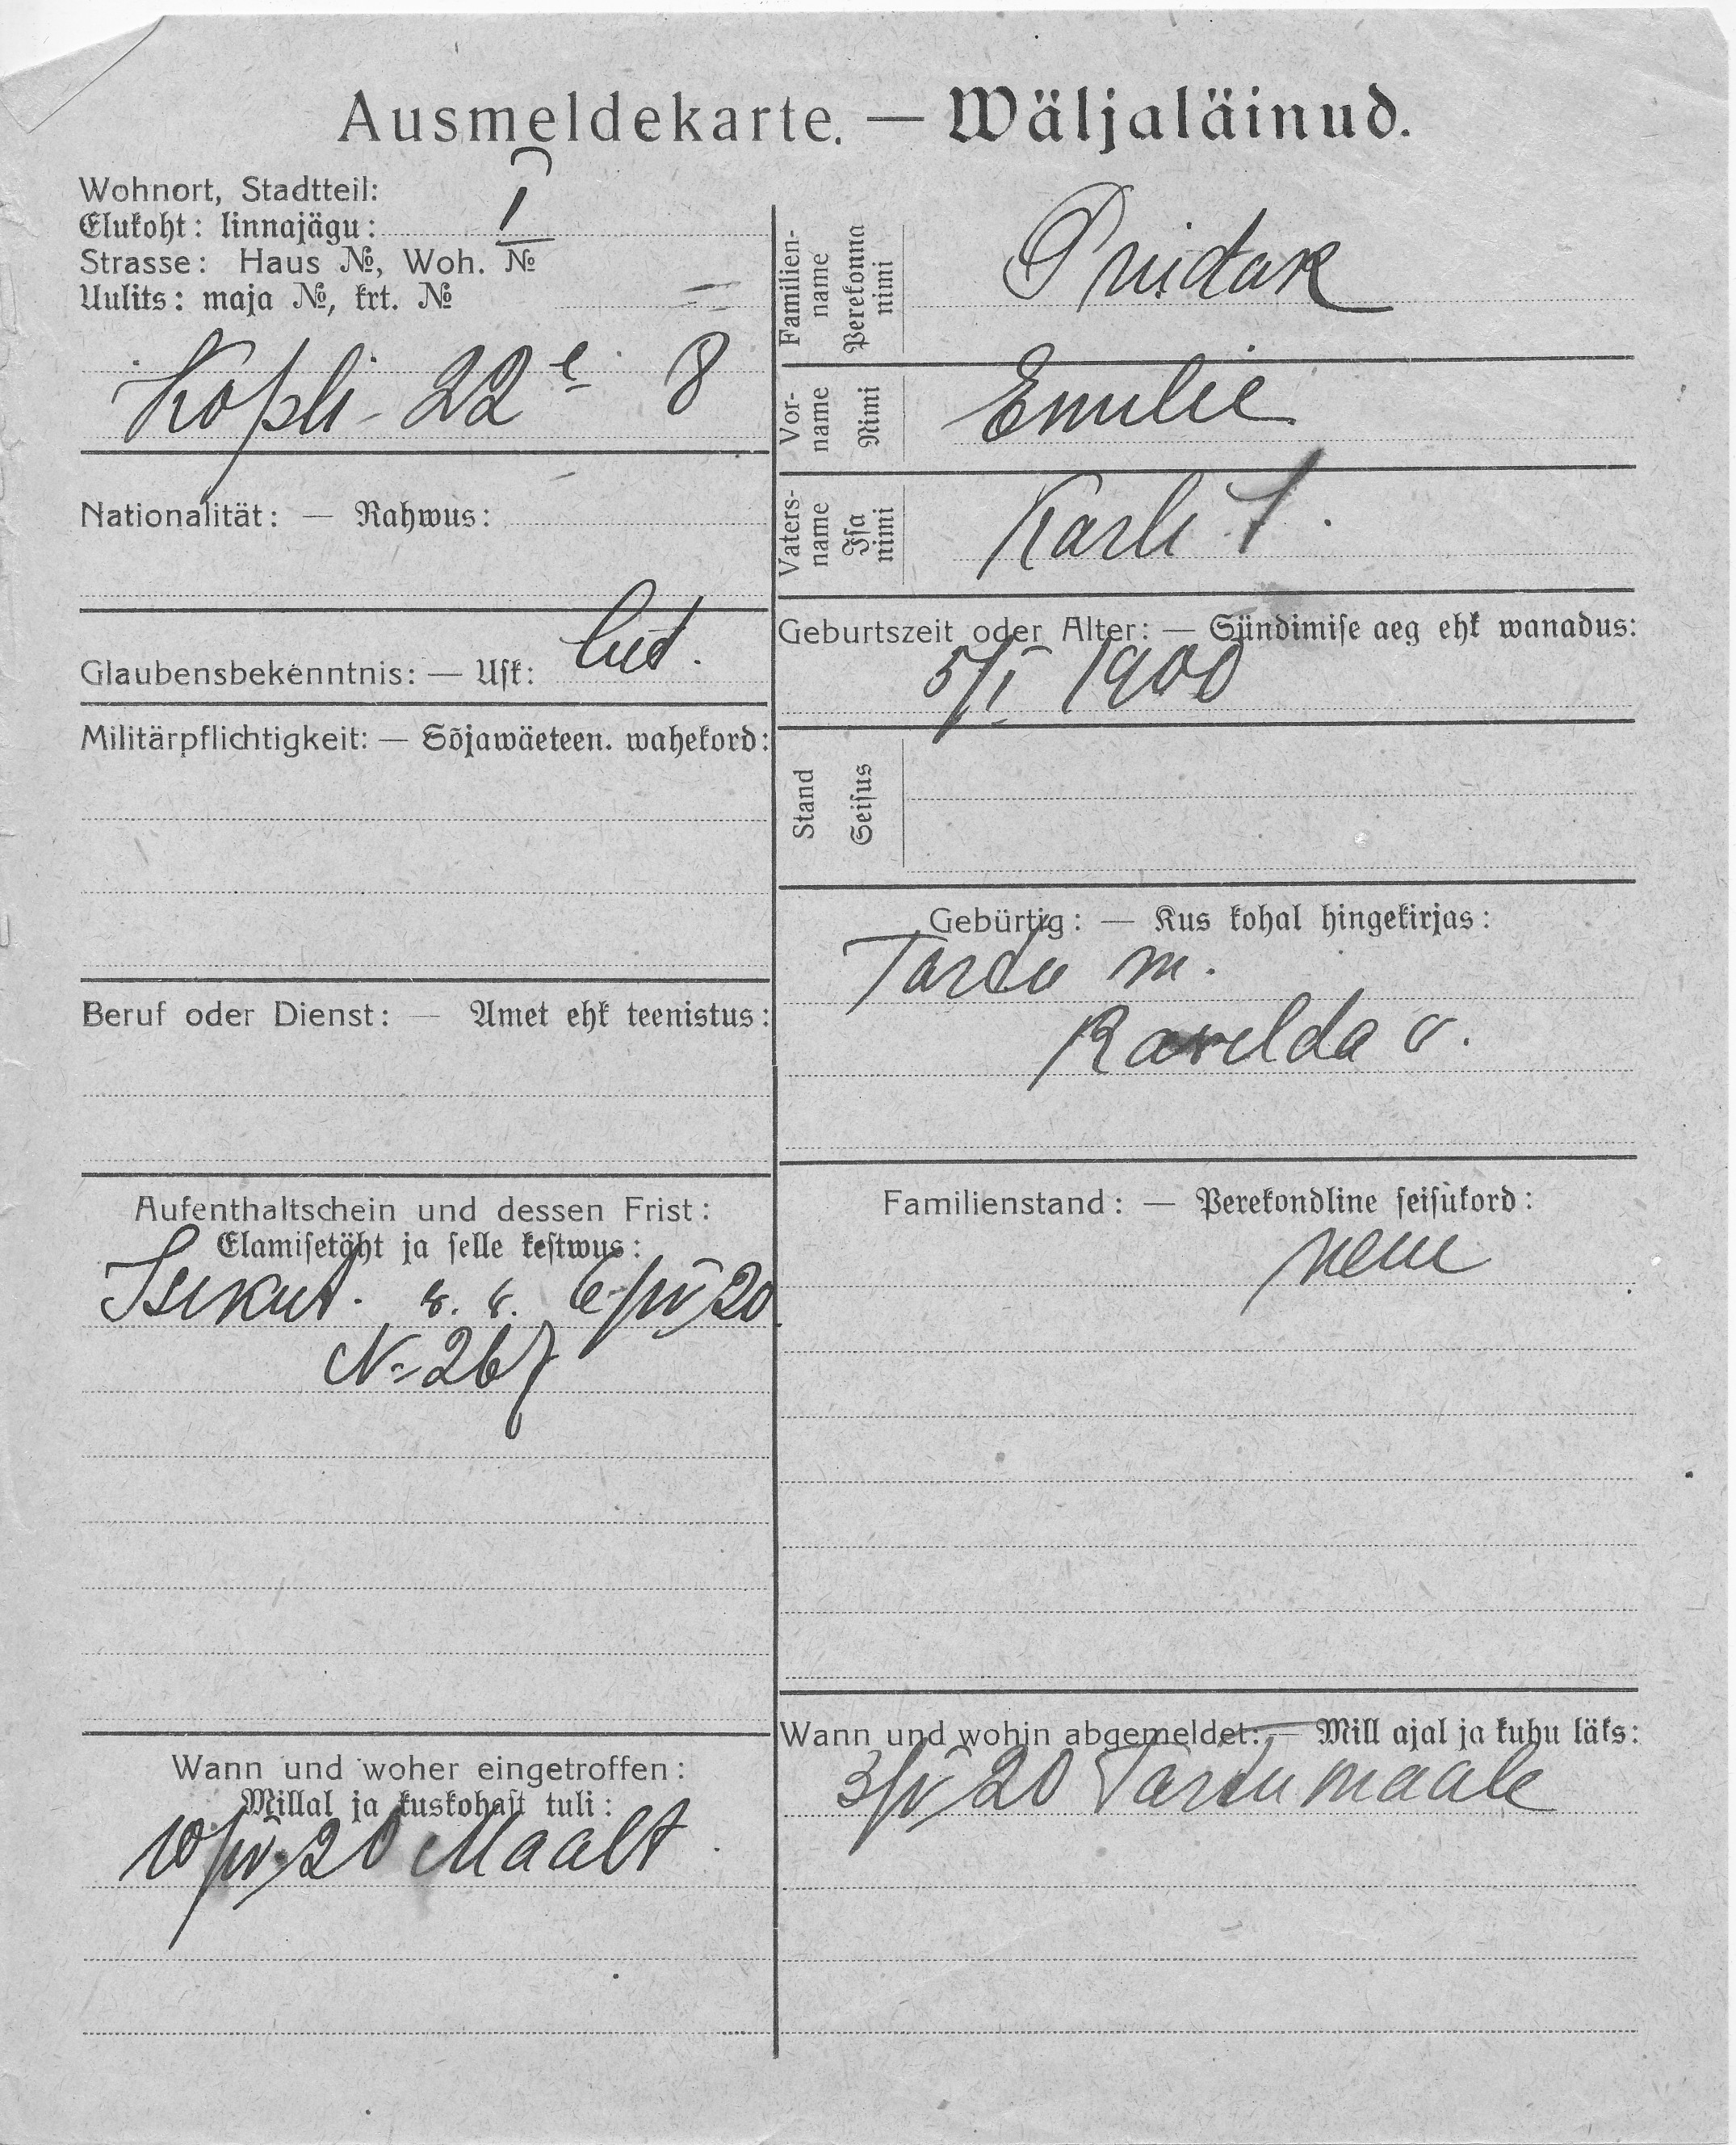 Ausmeldekarte. — Wäljaläinud.
Wohnort, Stadtteil:
Elukoht: linnajägu: I
Strasse: Haus №, Woh. №
Uulits: maja №, krt. №
Kopli 22 e 8
Nationalität: — Rahwus:
Glaubensbekenntnis: — Usk: lut.
Militärpflichtigkeit: — Sõjawäeteen. wahekord:
Beruf oder Dienst: — Amet ehk teenistus:
Aufenthaltschein und dessen Frist:
Elamisetäht ja selle kestwus:
Isikut. 6/IV 20
N 267
Wann und woher eingetroffen:
Millal ja kuskohast tuli:
10/IV 20 Maalt
Familien-
name
Perekonna
nimi
Pruidak
Vor-
name
Nimi
Emilie
Vaters-
name
Isa
nimi
Karli t.
Geburtszeit oder Alter: — Sündimise aeg ehk wanadus:
5/I 1900
Stand
Seisus
Gebürtig: — Kus kohal hingekirjas:
Tartu m.
Ravelda v.
Familienstand: — Perekondline seisukord:
neiu
Wann und wohin abgemeldet: — Mill ajal ja kuhu läks:
3/V 20 Tartumaale